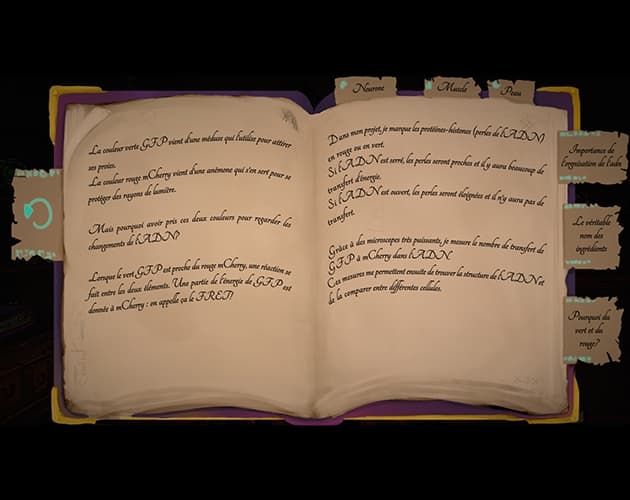 Neurone
Muscle
Peau
La couleur verte GFP vient d'une méduse qui l'utilise pour attirer
ses proies.
La couleur rouge mCherry vient d'une anémone qui s'en sert pour se
protéger des rayons de lumière.
Mais pourquoi avoir pris ces deux couleurs pour regarder les
changements de l'ADN?
Lorsque le vert GFP est proche du rouge mCherry, une réaction se
fait entre les deux éléments. Une partie de l'énergie de GFP est
donnée à mCherry : on appelle ça le FRET!
Dans mon projet, je marque les protéines-histones (perles de l'ADN)
en rouge ou en vert.
Si l'ADN est serré, les perles seront proches et il y aura beaucoup de
transfert d'énergie.
Si l'ADN est ouvert, les perles seront éloignées et il n'y aura pas de
transfert.
Grâce à des microscopes très puissants, je mesure le nombre de transfert de
GFP à mCherry dans l'ADN.
Ces mesures me permettent ensuite de trouver la structure de l'ADN et
de la comparer entre différentes cellules.
Importance de
l'orgnisation de l'adn
Le véritable
nom des
ingrédients
Pourquoi du
vert et du
rouge?